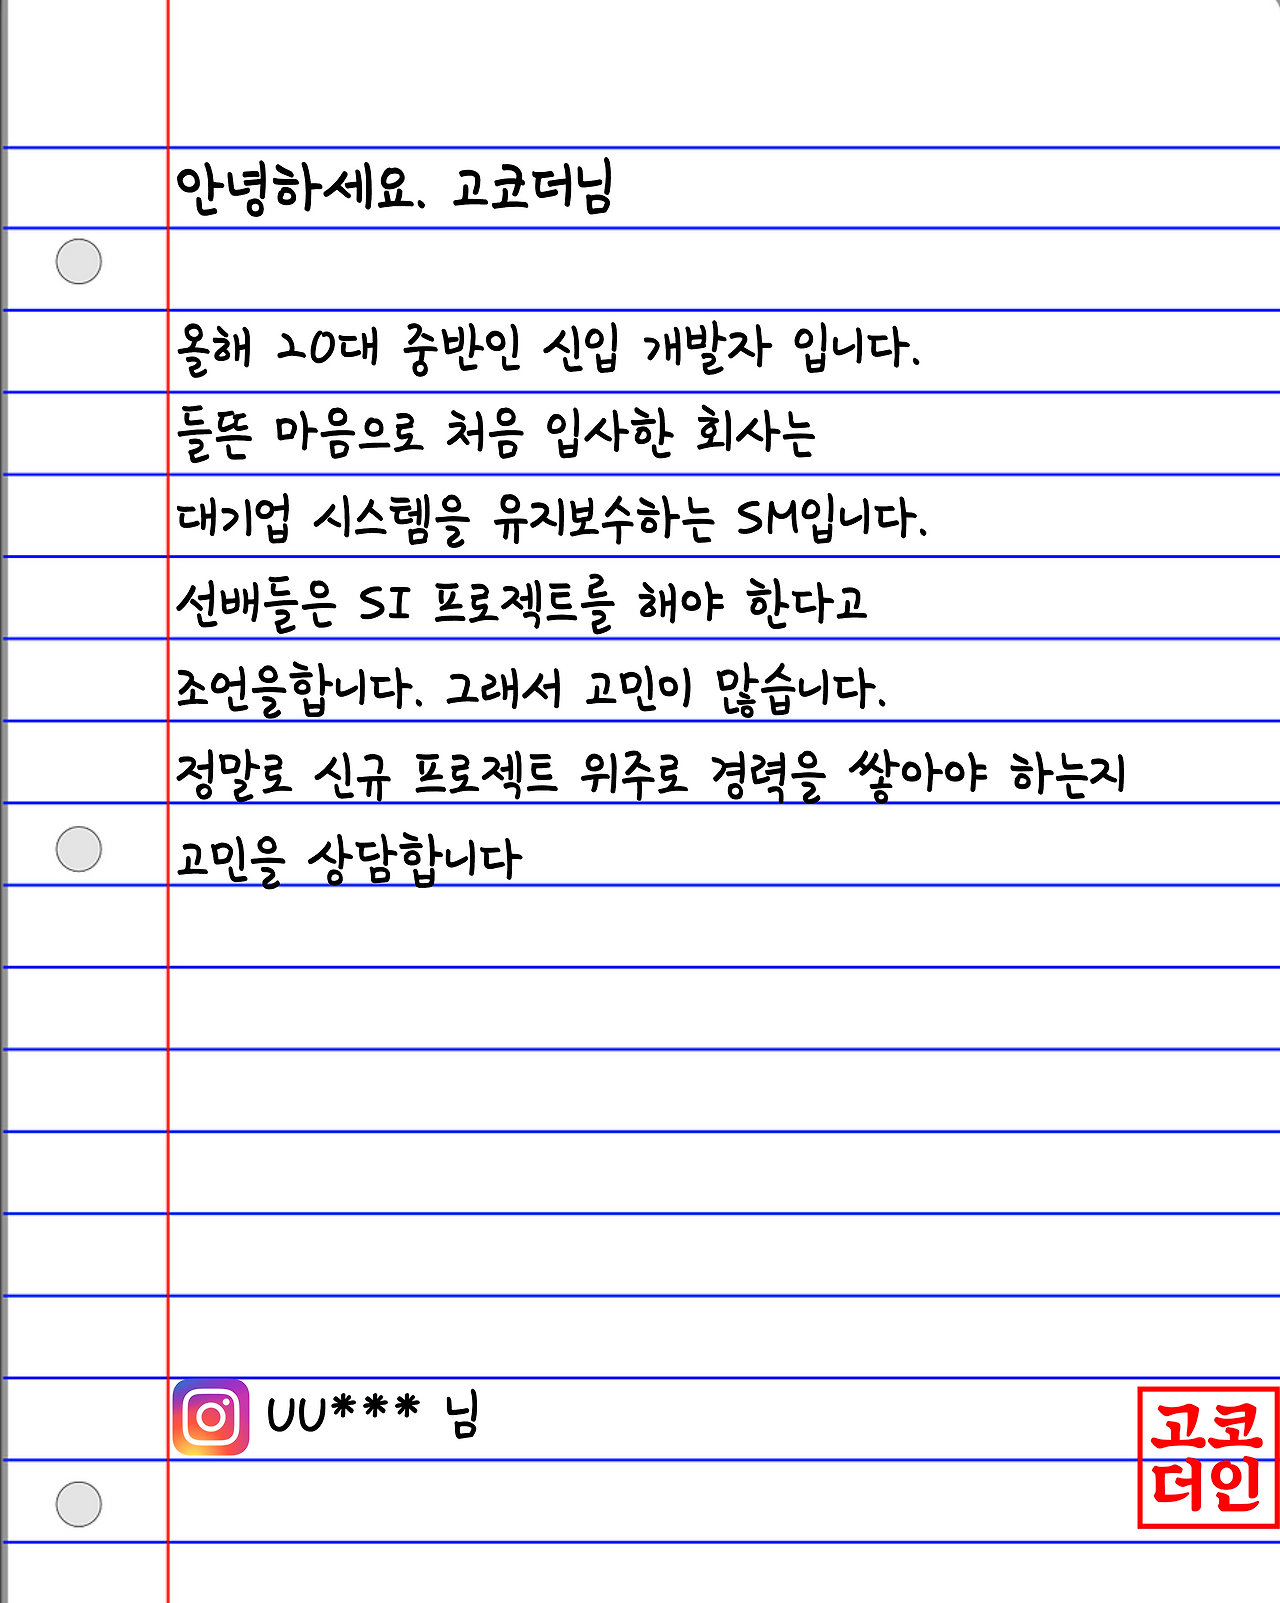 안녕하세요. 고코더님
올해 20대 중반인 신입 개발자 입니다.
들뜬 마음으로 처음 입사한 회사는
대기업 시스템을 유지보수하는 SM입니다.
선배들은 SI 프로젝트를 해야 한다고
조언을합니다. 그래서 고민이 많습니다.
정말로 신규 프로젝트 위주로 경력을 쌓아야 하는지
고민을 상담합니다
UU*** 님
고코
더인